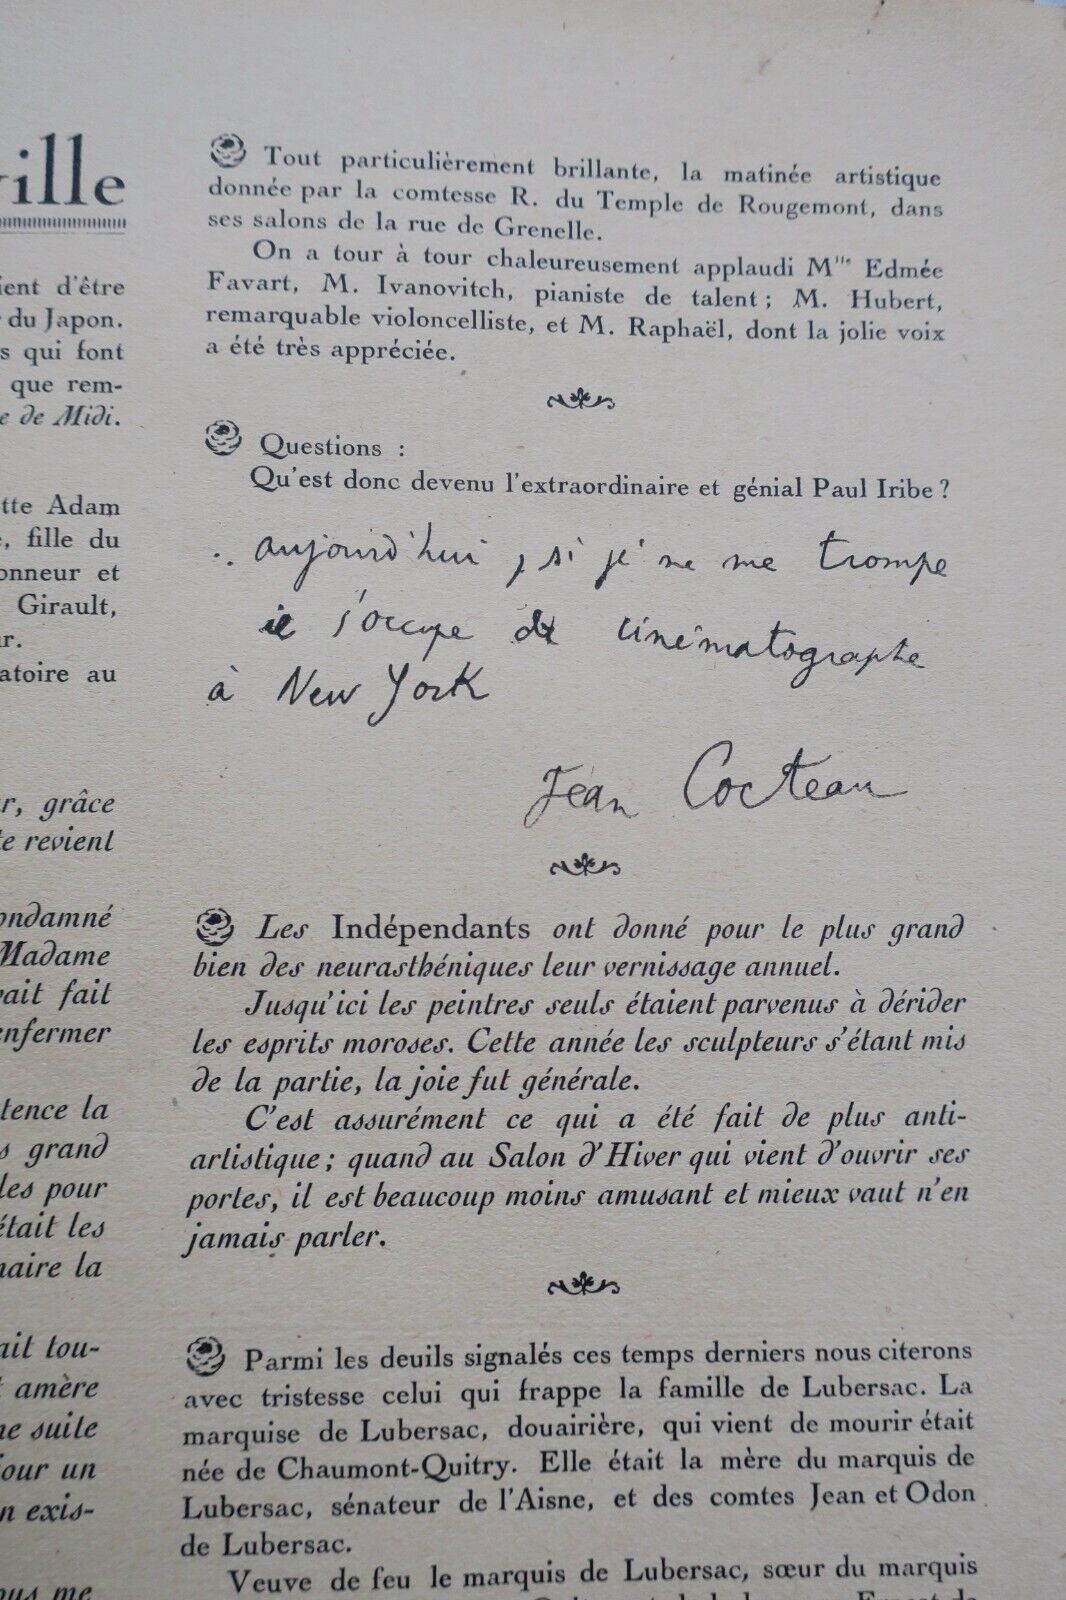 ville
ient d'être
du Japon.
s qui font
que rem-
e de Midi.
tte Adam
, fille du
onneur et
Girault,
ur.
atoire au
r, grâce
te revient
ondamné
Madame
vait fait
enfermer
tence la
s grand
les pour
était les
naire la
ait tou-
t amère
ne suite
jour un
n exis-
ous me
Tout particulièrement brillante, la matinée artistique
donnée par la comtesse R. du Temple de Rougemont, dans
ses salons de la rue de Grenelle.
On a tour à tour chaleureusement applaudi Mlle Edmée
Favart, M. Ivanovitch, pianiste de talent ; M. Hubert,
remarquable violoncelliste, et M. Raphaël, dont la jolie voix
a été très appréciée.
Questions :
Qu'est donc devenu l'extraordinaire et génial Paul Iribe ?
.. aujourd'hui, si je ne me trompe
il s'occupe de cinématographe
à New York
Jean Cocteau
Les Indépendants ont donné pour le plus grand
bien des neurasthéniques leur vernissage annuel.
Jusqu'ici les peintres seuls étaient parvenus à dérider
les esprits moroses. Cette année les sculpteurs s'étant mis
de la partie, la joie fut générale.
C'est assurément ce qui a été fait de plus anti-
artistique ; quand au Salon d'Hiver qui vient d'ouvrir ses
portes, il est beaucoup moins amusant et mieux vaut n'en
jamais parler.
Parmi les deuils signalés ces temps derniers nous citerons
avec tristesse celui qui frappe la famille de Lubersac. La
marquise de Lubersac, douairière, qui vient de mourir était
née de Chaumont-Quitry. Elle était la mère du marquis de
Lubersac, sénateur de l'Aisne, et des comtes Jean et Odon
de Lubersac.
Veuve de feu le marquis de Lubersac, sœur du marquis